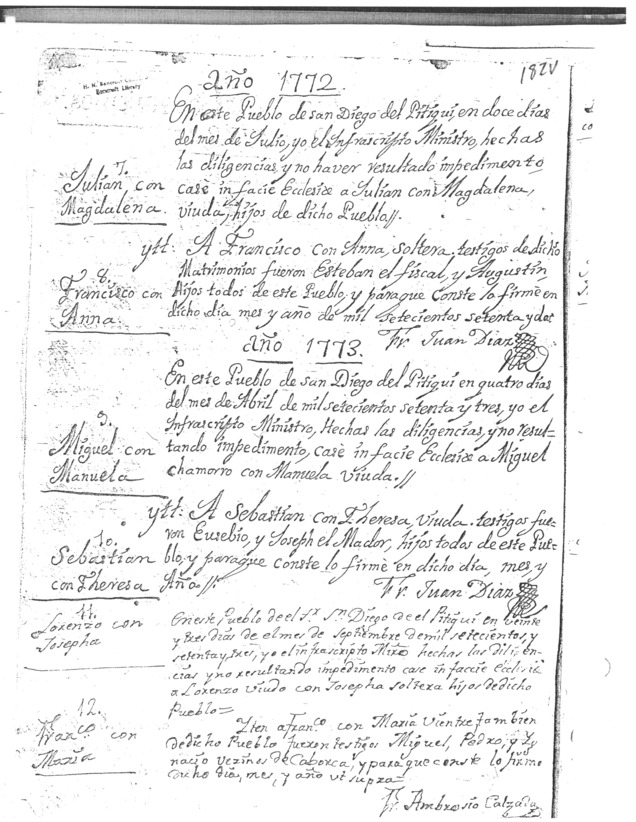 182V
H. H. Bancroft
Bancroft Library
Año 1772
En este Pueblo de san Diego del Pitiqui, en doce dias
del mes de Julio, yo el Infrascripto Ministro, hechas
las diligencias, y no haver resultado impedimento
7.
Julian, con
Magdalena.
case in facie Ecclesiæ a Julian con Magdalena,
viuda, hijos de dicho Pueblo//.
ytt: A Francisco con Anna, soltera. testigos de dicho
Matrimonios fueron Esteban el fiscal, y Augustin
8.
Francisco con
Anna.
Hijos todos de este Pueblo, y paraque conste lo firme en
dicho dia mes y año de mil setecientos setenta y dos
Fr. Juan Diaz
Año 1773.
En este Pueblo de san Diego del Pitiqui en quatro dias
del mes de Abril de mil setecientos setenta y tres, yo el
Infrascripto Ministro, Hechas las diligencias, y no resul-
9.
Miguel con
Manuela
tando impedimento, case in facie Ecclesiæ a Miguel
chamorro con Manuela viuda.//
ytt: A Sebastian con Theresa, viuda. testigos fue-
ron Eusebio, y Joseph el Mador, hijos todos de este Pue-
10.
Sebastian
con Theresa
blo, y paraque conste lo firme en dicho dia, mes, y
Año.//.
Fr. Juan Diaz
11.
Lorenzo con
Josepha
En este Pueblo de el Sr. Sn. Diego de el Pitiqui en veinte
y tres dias de el mes de Septiembre de mil setecientos, y
setenta y tres, yo el infrascripto Mrō. hechas las dilig.en-
cias y no resultando impedimento case in faccie Ecclisiæ
a Lorenzo viudo con Josepha soltera hijos de dicho
Pueblo=
12.
Franco. con
Maria
Yten a Franco. con Maria tambien
de dicho Pueblo fueron testigos Miguel, Pedro, y Yg
nacio vezinos de Caborca, y para que conste lo firmo
dicho dia, mes, y año ut supra=
Fr. Ambrosio Calzada